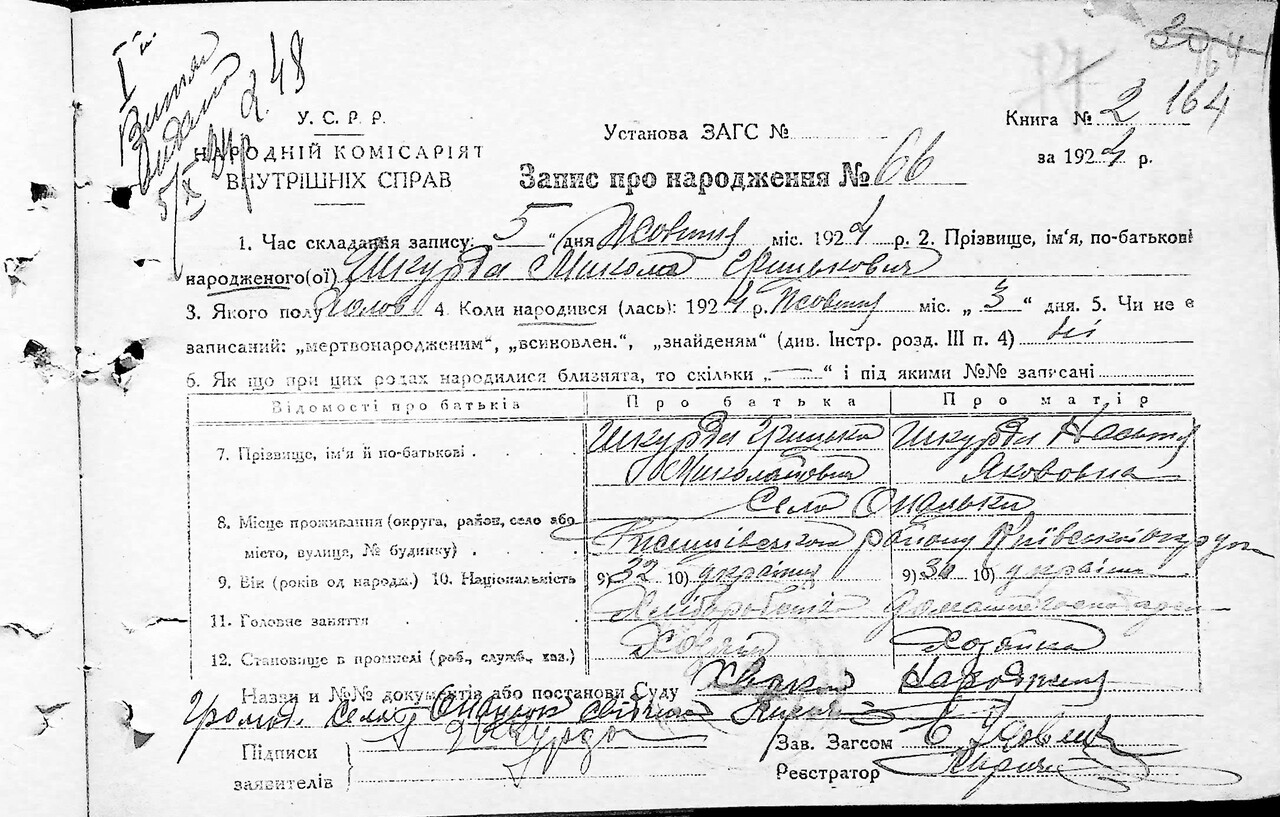 І
Витяг
видано
5/X 2 48
304
164
У. С. Р. Р.
НАРОДНІЙ КОМІСАРІЯТ
ВНУТРІШНІХ СПРАВ
Установа ЗАГС №
Книга № 2
за 1924 р.
Запис про народження № 66
1. Час складання запису: „ 5 “ дня Жовтня міс. 1924 р. 2. Прізвище, ім'я, по-батькові
народженого(ої) Шкурда Микола Грицькович
3. Якого полу Чолов 4. Коли народився (лась): 1924 р. Жовтня міс. „ 3 “ дня. 5. Чи не є
записаний: „мертвонародженим“, „всиновлен.“, „знайденям“ (див. Інстр. розд. III п. 4) ні
6. Як що при цих родах народилися близнята, то скільки „ — “ і під якими №№ записані
Відомості про батьків Про батька Про матір
7. Прізвище, ім'я й по-батькові Шкурда Грицько Шкурда Настя
Миколайович Якововна
Село
8. Місце проживання (округа, район, село або
місто, вулиця, № будинку) району
9. Вік (років од народж.) 10. Національність 9) 32 10) україн 9) 30 10) україн
11. Головне заняття
12. Становище в промислі (роб., служб., хаз.) Хозяїн Хозяйка
Назви и №№ документів або постанови Суду Народження
Громад. села
Підписи
заявителів
Шкурда
Зав. Загсом
Реєстратор